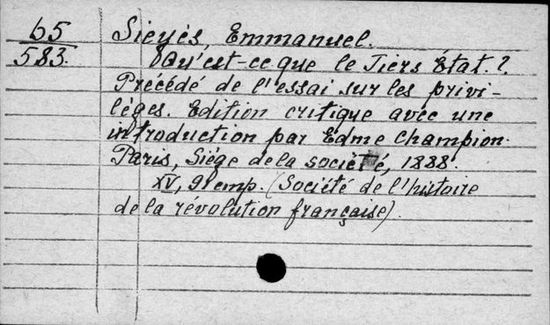 65
583.
Sieyès, Emmanuel.
Qu'est-ce que le Tiers État?
Précédé de l'essai sur les privi-
lèges. Edition critique avec une
introduction par Edme Champion.
Paris, Siége de la société, 1888.
XV, 91 стр. (Société de l'histoire
de la révolution française).